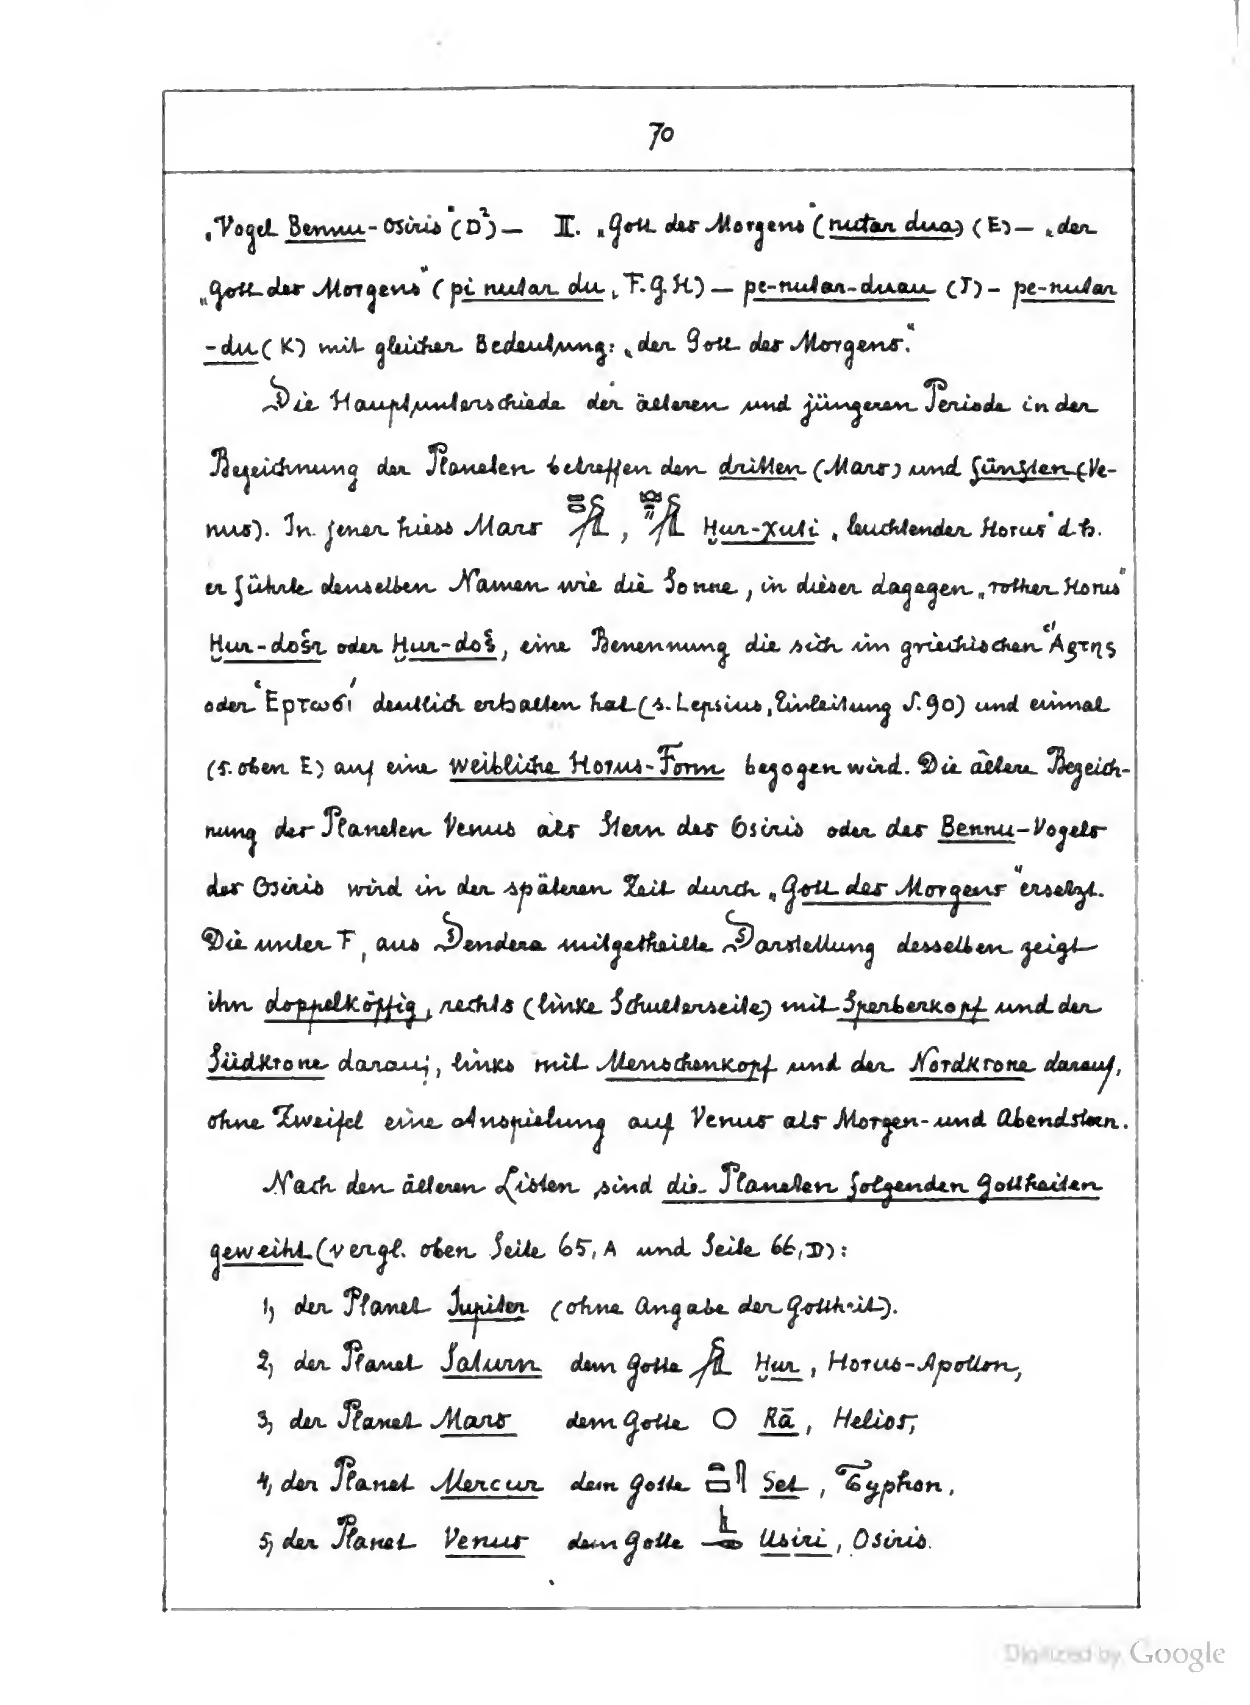 70
„Vogel Bennu-Osiris" (D²) — II. „Gott des Morgens" (nutar dua) (E) — „der
„Gott des Morgens" (pi nutar du, F. G. H) — pe-nutar-duau (J) - pe-nutar
-du (K) mit gleicher Bedeutung: „der Gott des Morgens."
Die Hauptunterschiede der älteren und jüngeren Periode in der
Bezeichnung der Planeten betreffen den dritten (Mars) und fünften (Ve-
nus). In jener hiess Mars , Hur-χuti „leuchtender Horus" d.h.
er führte denselben Namen wie die Sonne, in dieser dagegen „rother Horus"
Hur-dośr oder Hur-doś, eine Benennung die sich im griechischen Ἄρτης
oder Ἑρτωσί deutlich erhalten hat (s. Lepsius, Einleitung S. 90) und einmal
(s. oben E) auf eine weibliche Horus-Form bezogen wird. Die ältere Bezeich-
nung des Planeten Venus als Stern des Osiris oder des Bennu-Vogels
des Osiris wird in der späteren Zeit durch „Gott des Morgens" ersetzt.
Die unter F, aus Dendera mitgetheilte Darstellung desselben zeigt
ihn doppelköpfig, rechts (linke Schulterseite) mit Sperberkopf und der
Südkrone darauf, links mit Menschenkopf und der Nordkrone darauf,
ohne Zweifel eine Anspielung auf Venus als Morgen- und Abendstern.
Nach den älteren Listen sind die Planeten folgenden Gottheiten
geweiht (vergl. oben Seite 65, A und Seite 66, D):
1, der Planet Jupiter (ohne Angabe der Gottheit).
2, der Planet Saturn dem Gotte Hur, Horus-Apollon,
3, der Planet Mars dem Gotte Rā, Helios,
4, der Planet Mercur dem Gotte Set, Typhon,
5, der Planet Venus dem Gotte Usiri, Osiris.
Digitized by Google